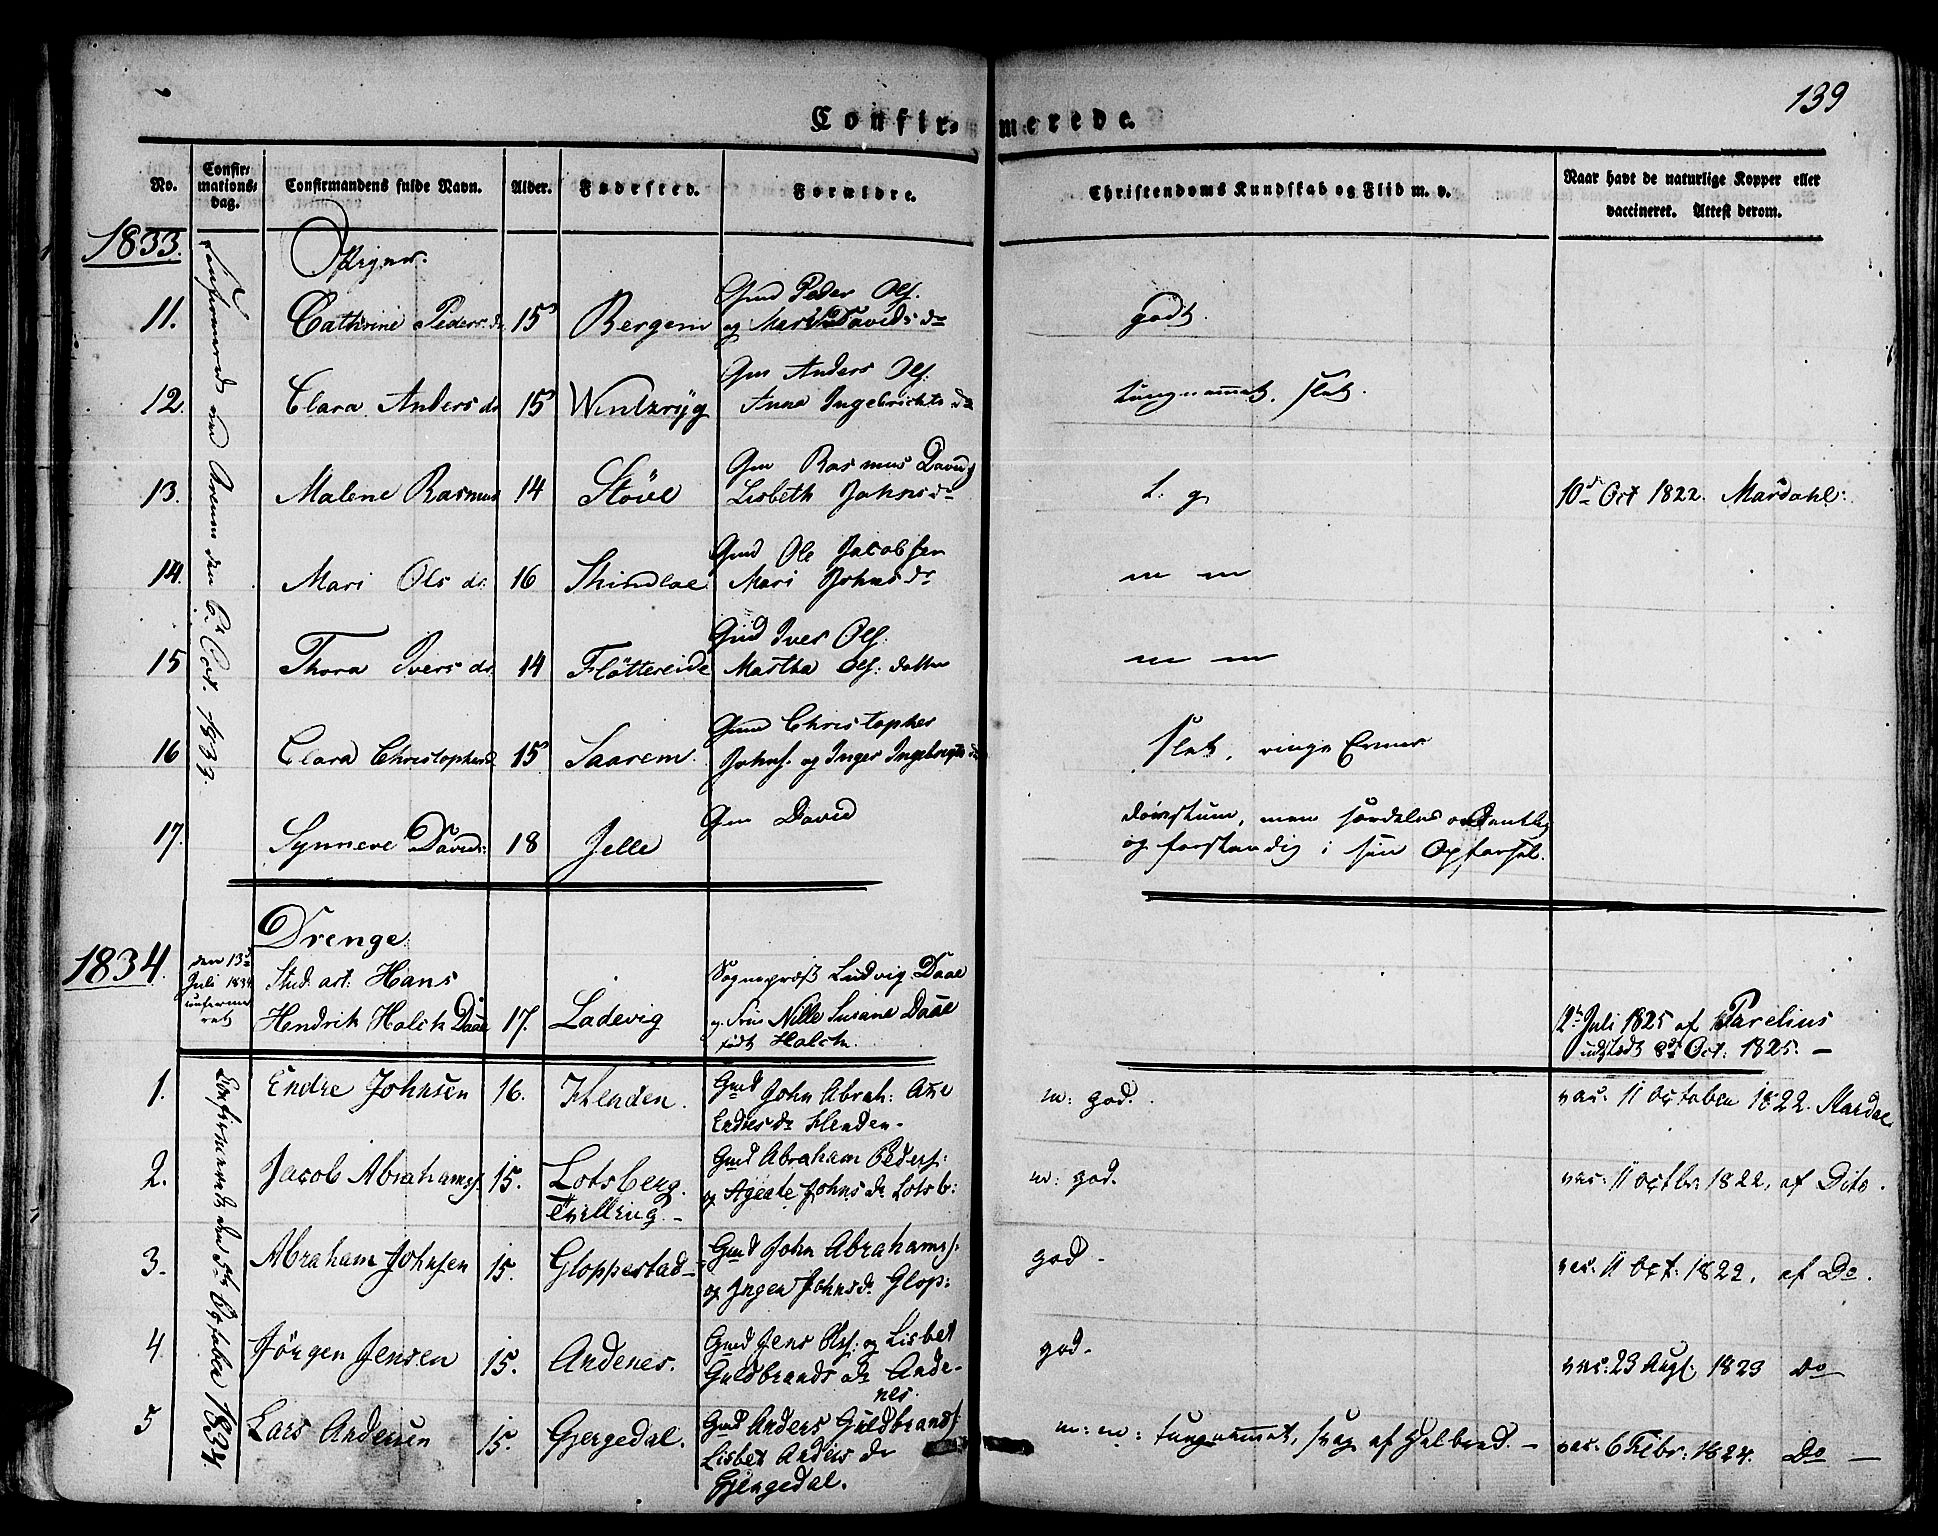 139
Confirmerede.
No. Confirmations-dag. Confirmandens fulde Navn. Alder. Fødested. Forældre. Christendoms Kundskab og Flid m. v. Naar havt de naturlige Kopper eller vaccineret. Attest derom.
1833. Piger.
Confirmerede den 6te Oct. 1833.
11. Cathrine Peders dr 15 Bergem Gmd Peder Ols. godt.
og Davids dr
12. Clara Anders dr 15 Gm Anders Ols: tungnemmet, slet.
Anna Ingebrichts dr
13. Malene Rasmus 14 Støve Gm Rasmus Davids t. g. 10de Oct 1822. Mardahl:
Lisbeth Johns dr
14. Mari Ols dr. 16 Gmd Ole Jacobsen
Mari Johns dr
15 Thora Ivers dr. 14 Flöttereide Gmd Iver Ols:
Martha Ols: datter
16 Clara Christophersd 15 Saarem. Gmd Christopher slet, ringe Evner
Johns. og Inger Ingebrigts dr
17. Synneve Davids: 18 Jelle Gm David døvstum, men
og forstandig i sin Opførsel.
1834. Drenge
den 13de Juli 1834 confirmeret
Stud. art: Hans Sognepræst Ludvig Daae
Hendrik Holck Daae 17. Ladevig og Fru Nille Susane Daae 12te Juli 1825 af Parelius
født Holck. udstedt 8de Oct: 1825. —
Confirmerede den 5te October 1834.
1. Endre Johnsen 16. Henden. Gmd John Abrah: Ane m: god. vac: 11 October 1822. Mardal
Endres dr Henden.
2. Jacob Abrahams. 15. Lotsberg. Gmd Abraham Peders: m: god. vac: 11 Octbr: 1822, af Dito.
Tvilling. — og Agate Johns dr Lotsb:
3. Abraham Johnsen 15. Gloppestad — Gmd John Abrahams. god. vac: 11 Oct: 1822, af Do.
og Ingen Johnsdr Glop:
4. Jörgen Jensen 15. Andenes. Gmd Jens Ols: og Lisbet god. vac: 23 Augs. 1823 Do
Guldbrands dr Ande-
nes.
5 Lars Andersen 15. Gjergedal. Gmd Anders Guldbrands. m: m: tungnemmet, svag af Helbred. — vac: 6 Febr: 1824. Do —
Lisbet Anders dr
Gjengedal.